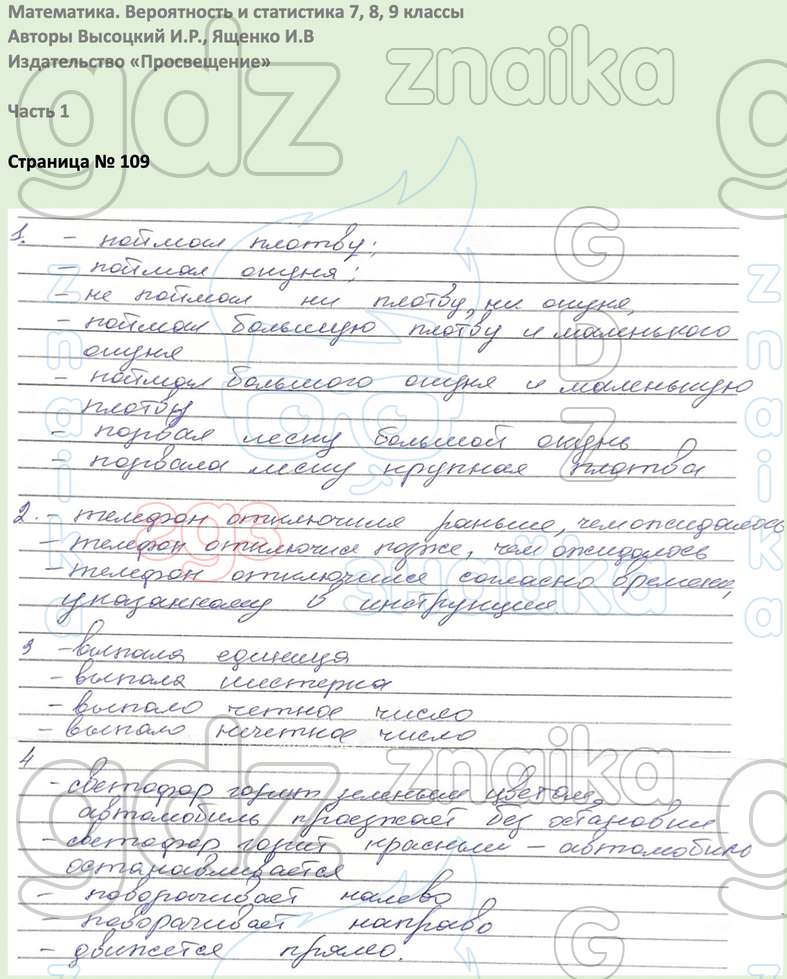 Математика. Вероятность и статистика 7, 8, 9 классы
Авторы Высоцкий И.Р., Ященко И.В
Издательство «Просвещение»
gdz znaika
Часть 1
Страница № 109
1. – поймал плотву;
– поймал окуня;
– не поймал ни плотву, ни окуня,
– поймал большую плотву и маленького
окуня
– поймал большого окуня и маленькую
плотву
– порвал леску большой окунь
– порвала леску крупная плотва
2. – телефон отключился раньше, чем ожидалось
– телефон отключился позже, чем ожидалось
– телефон отключился согласно времени,
указанному в инструкции
3 – выпала единица
– выпала шестерка
– выпало четное число
– выпало нечетное число
4
– светофор горит зеленым цветом,
автомобиль проезжает без остановки
– светофор горит красным – автомобиль
останавливается
– поворачивает налево
– поворачивает направо
– движется прямо.